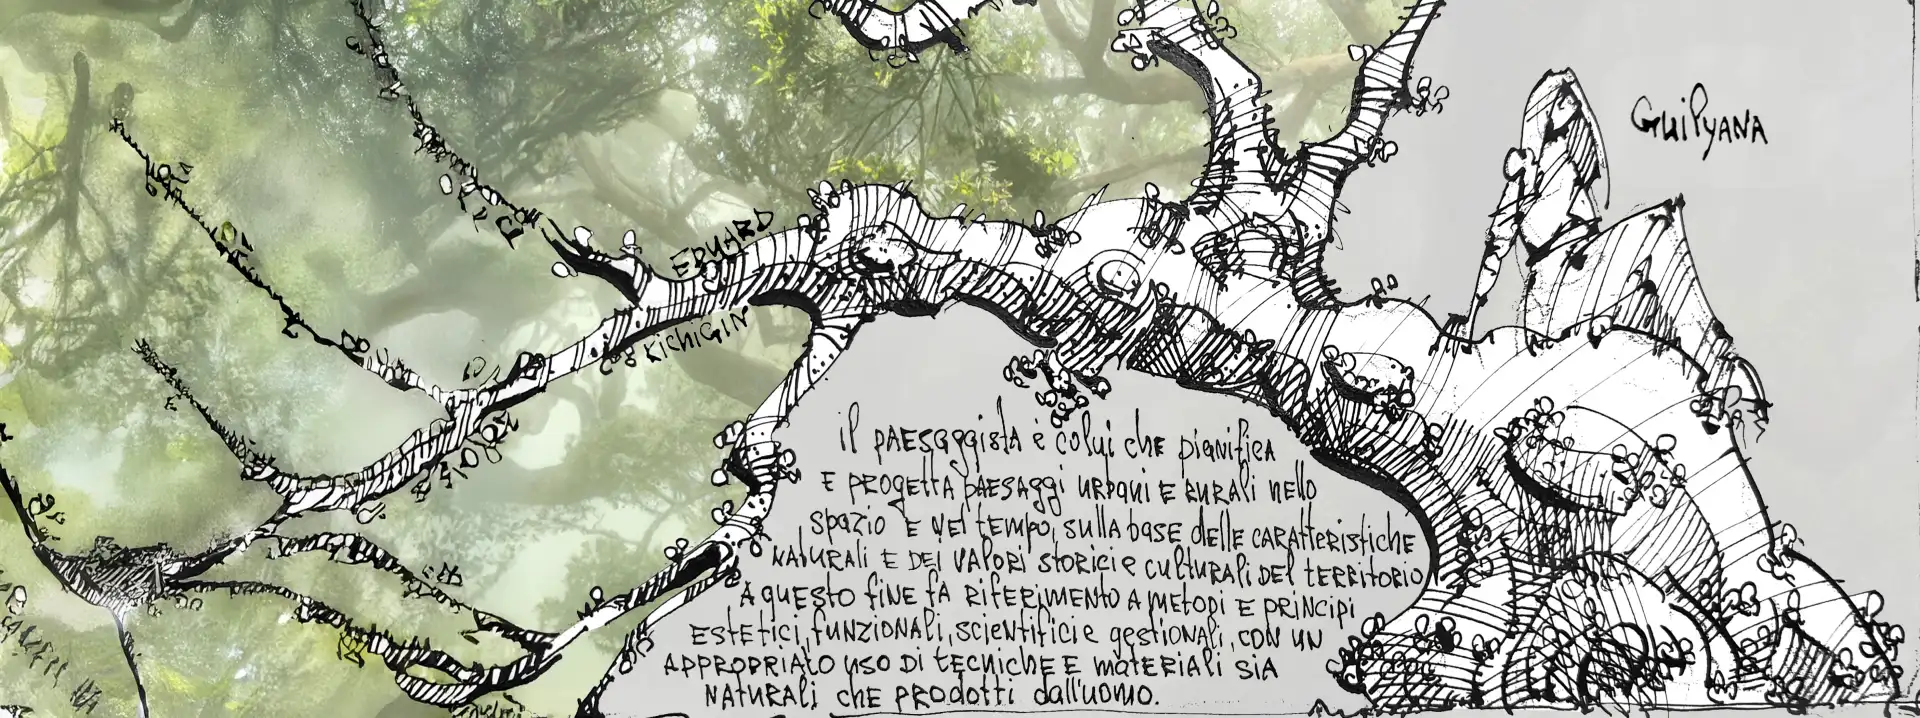 GuilYANA
EDUARD
KichiGIN
il PAESAGGISTA è colui che pianifica
E PROGETTA PAESAGGI URBANI E RURALI NELLO
SPAZIO E NEL TEMPO, SULLA BASE DELLE CARATTERISTICHE
NATURALI E DEI VALORI STORICI e CULTURALI DEL TERRITORIO
A QUESTO FINE FA RIFERIMENTO A METODI E PRINCIPI
ESTETICI, FUNZIONALI, SCIENTIFICI e GESTIONALI, CON UN
APPROPRIATO USO DI TECNICHE E MATERIALI SIA
NATURALI CHE PRODOTTI DALL'UOMO.